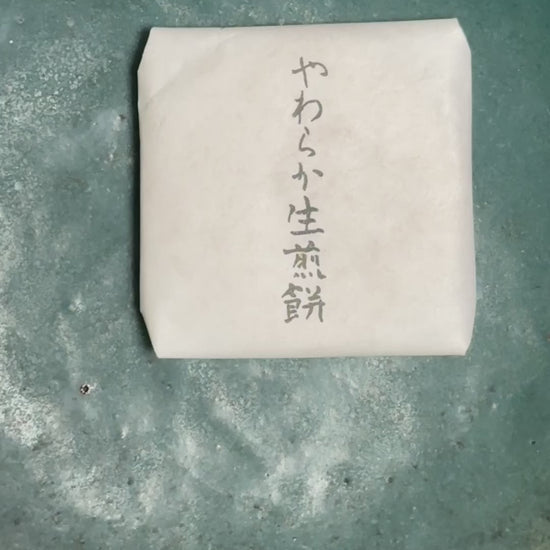 やわらか生煎餅